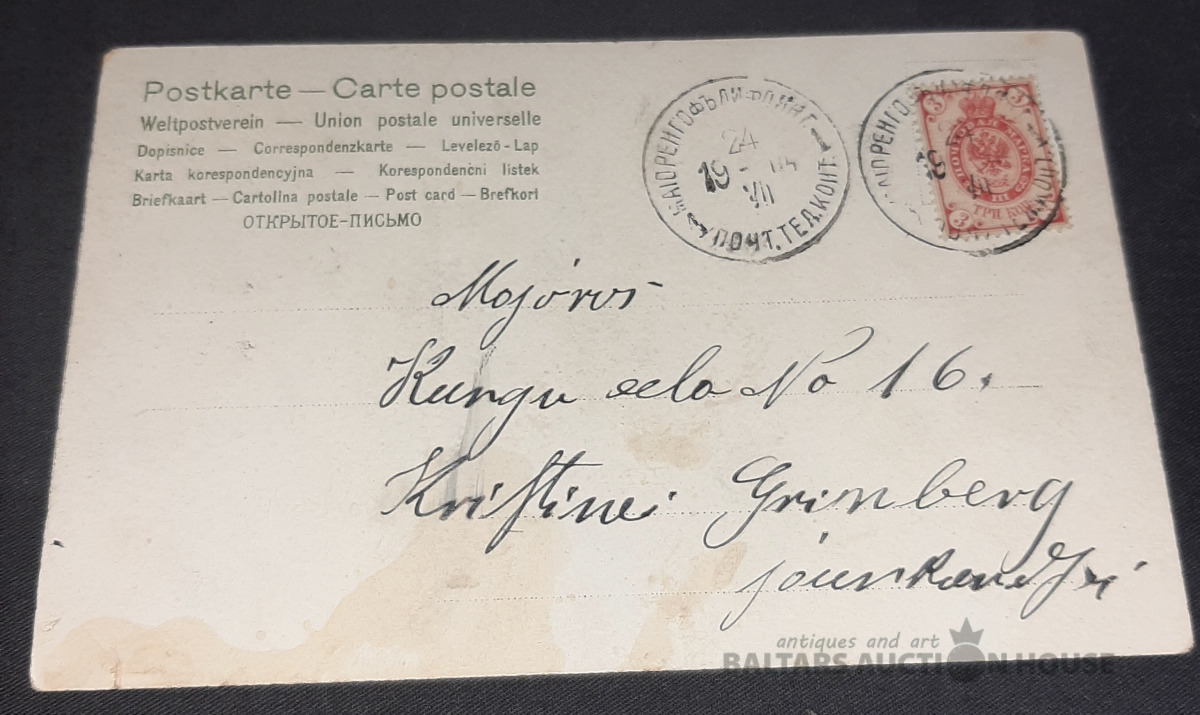 Postkarte — Carte postale
Weltpostverein — Union postale universelle
Dopisnice — Correspondenzkarte — Levelező-Lap
Karta korespondencyjna — Korespondenčni listek
Briefkaart — Cartolina postale — Post card — Brefkort
ОТКРЫТОЕ-ПИСЬМО
МАІОРЕНГОФЪ ЛИФЛ
24
19 - 04
VII
ПОЧТ. ТЕЛ. КОНТ.
3 3
ТРИ КОП
3
VII
Majóros
Kungu ᴣela No 16.
Kristinei Grinberg
jaunkundzei
antiques and art
BALTARS AUCTION HOUSE